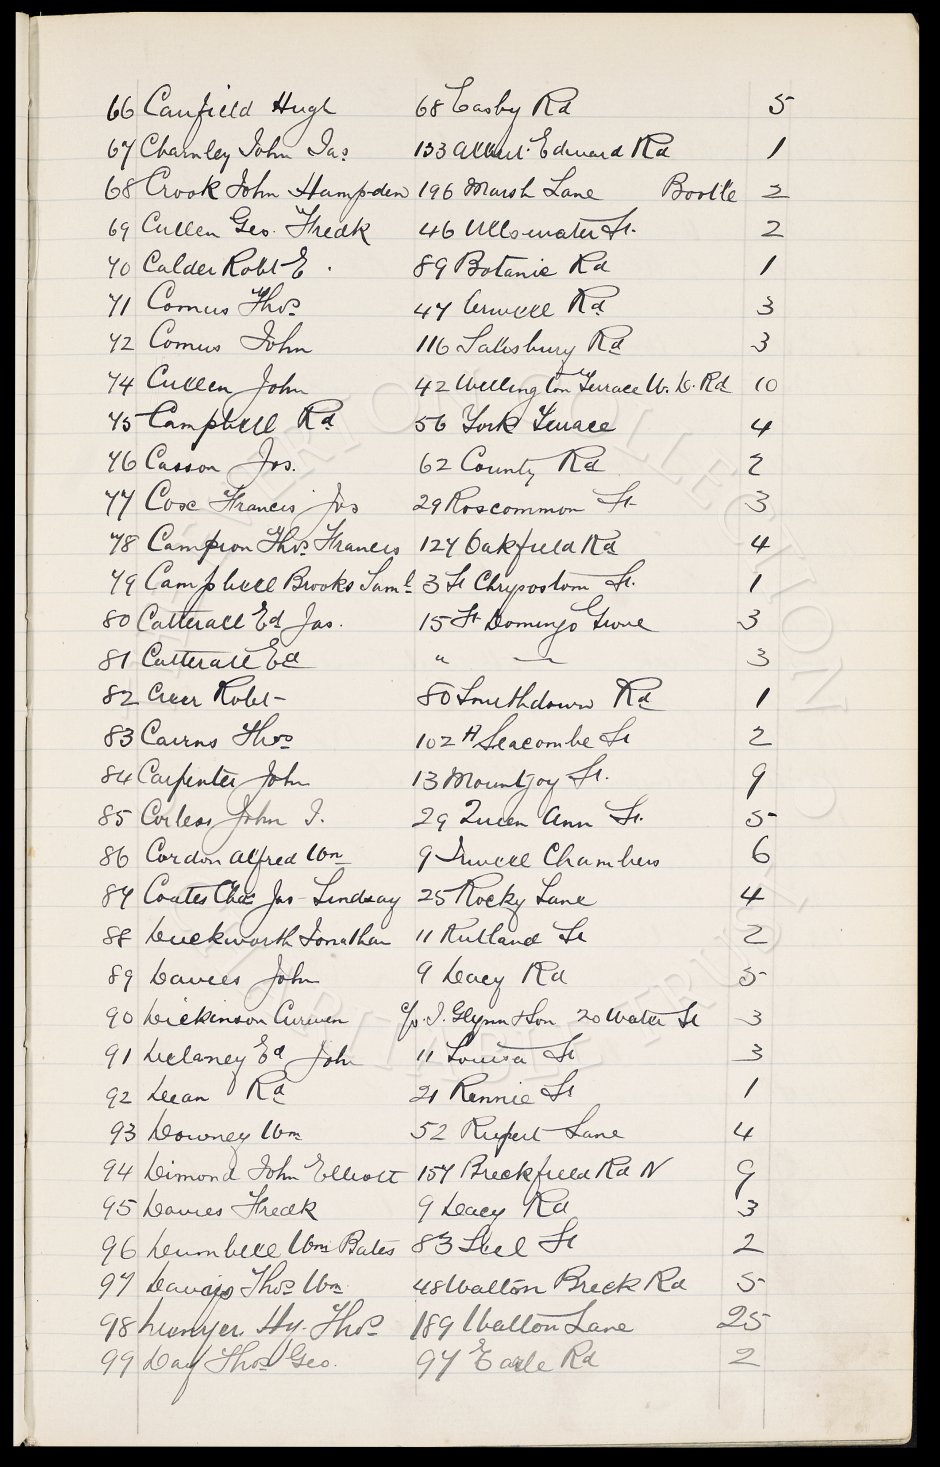 66 Caufield Hugh 68 Easby Rd 5
67 Charnley John Jas 133 Albert Edward Rd 1
68 Crook John Hampden 196 Marsh Lane Bootle 2
69 Cullen Geo. Fredk 46 Ullswater St. 2
70 Calder Robt E. 89 Botanic Rd 1
71 Comus Thos 47 Rd 3
72 Comus John 116 Salisbury Rd 3
74 Cullen John 42 Wellington Terrace W. D. Rd 10
75 Campbell Rd 56 York Terrace 4
76 Casson Jos. 62 County Rd 2
77 Cose Francis Jos 29 Roscommon St 3
78 Campion Thos. Francis 127 Oakfield Rd 4
79 Campbell Brooks Saml 3 St Chrysostom St. 1
80 Catterall Ed Jas. 15 St Domingo Grove 3
81 Catterall Ed " — 3
82 Creer Robt - 80 Smithdown Rd 1
83 Cairns Thos 102A Seacombe St 2
84 Carpenter John 13 Mountjoy St. 9
85 Corless John J. 29 Queen Ann St. 5
86 Cordon Alfred Wm 9 Irwell Chambers 6
87 Coates Chas Jas Lindsay 25 Rocky Lane 4
88 Duckworth Jonathan 11 Rutland St 2
89 Davies John 9 Dacy Rd 5
90 Dickinson Curwen c/o. J. Glynn & Son 20 Water St 3
91 Delaney Ed John 11 Louisa St 3
92 Dean Rd 21 Rennie St 1
93 Downey Wm 52 Rupert Lane 4
94 Dimond John Elliott 157 Breckfield Rd N 9
95 Davies Fredk 9 Dacy Rd 3
96 Dumbell Wm Bates 83 St 2
97 Thos Wm 48 Walton Breck Rd 5
98 Hy. Thos 189 Walton Lane 25
99 Day Thos Geo. 97 Earle Rd 2